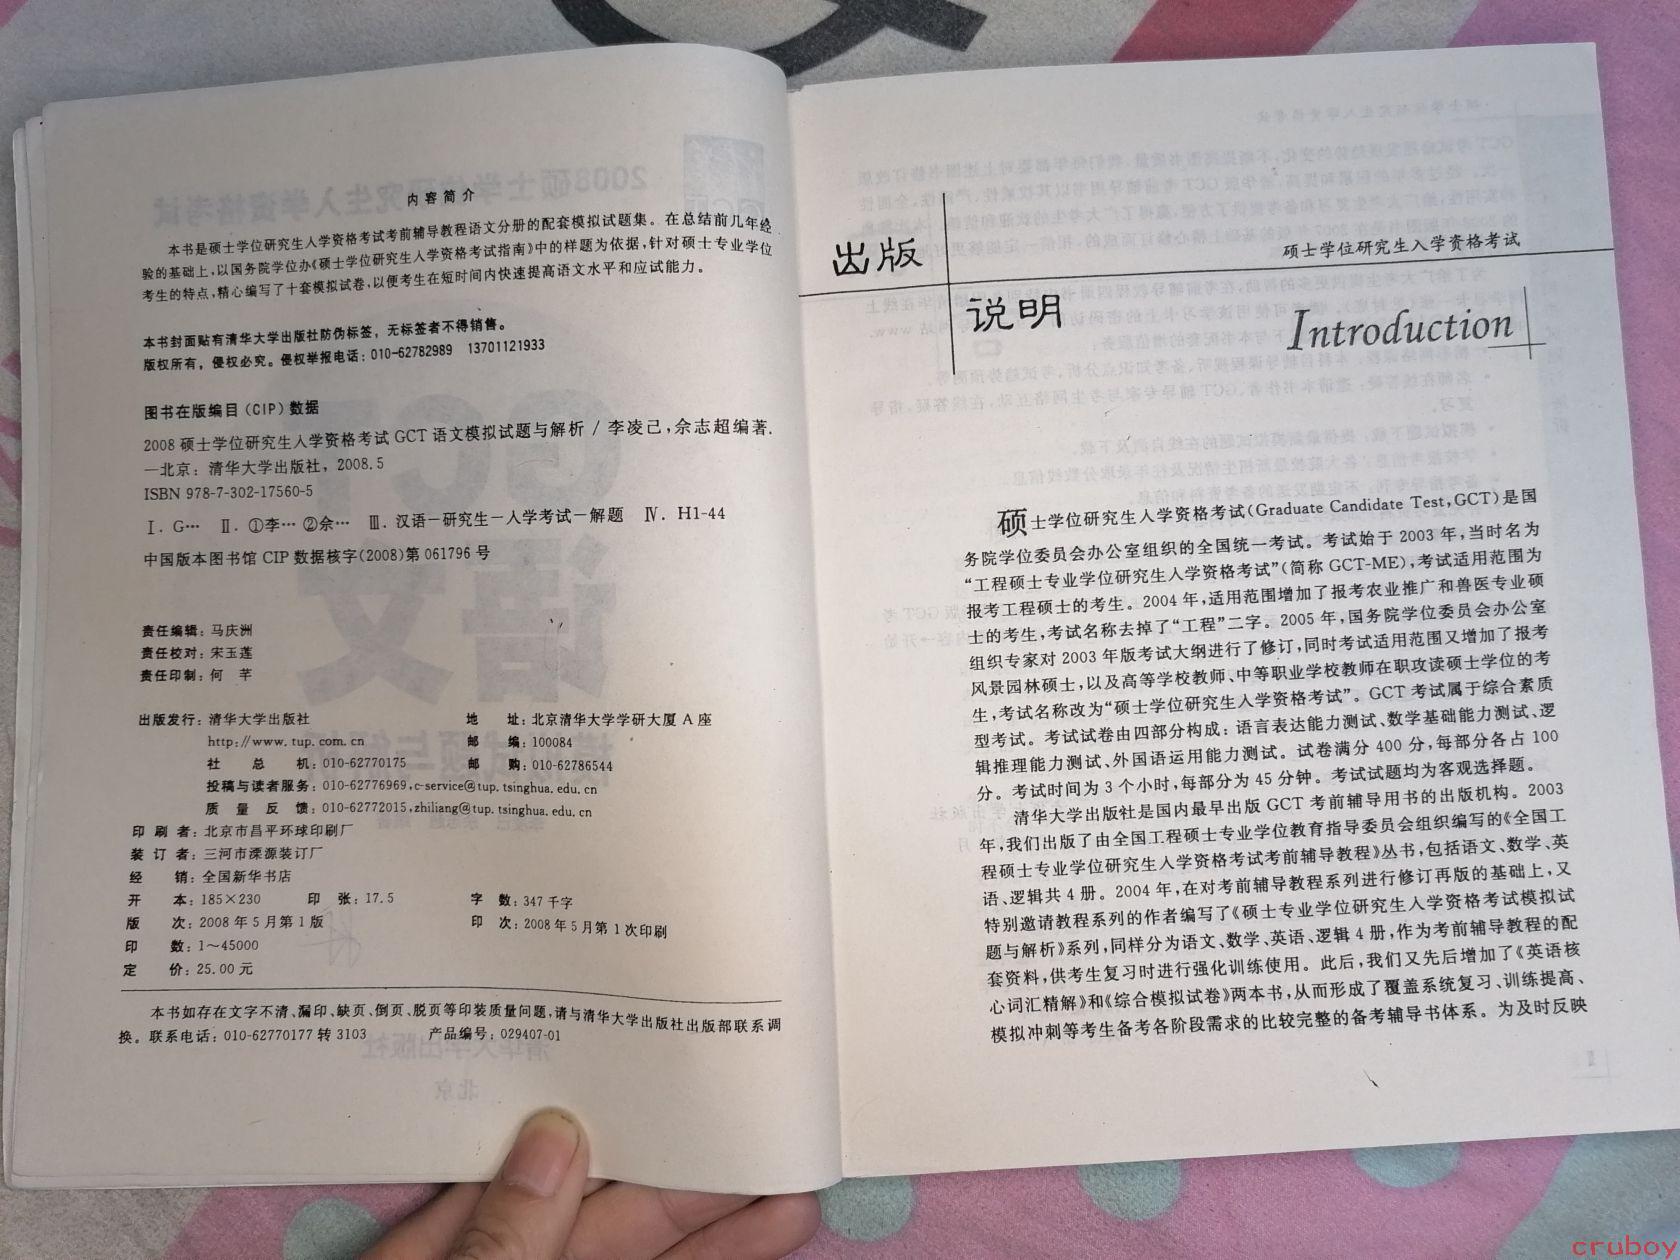 内容简介
本书是硕士学位研究生入学资格考试考前辅导教程语文分册的配套模拟试题集。在总结前几年经
验的基础上,以国务院学位办《硕士学位研究生入学资格考试指南》中的样题为依据,针对硕士专业学位
考生的特点,精心编写了十套模拟试卷,以便考生在短时间内快速提高语文水平和应试能力。
本书封面贴有清华大学出版社防伪标签,无标签者不得销售。
版权所有,侵权必究。侵权举报电话:010-62782989 13701121933
图书在版编目(CIP)数据
2008硕士学位研究生入学资格考试GCT语文模拟试题与解析/李凌己,佘志超编著.
—北京:清华大学出版社,2008.5
ISBN 978-7-302-17560-5
Ⅰ.G… Ⅱ.①李… ②佘… Ⅲ.汉语-研究生-入学考试-解题 Ⅳ.H1-44
中国版本图书馆CIP数据核字(2008)第061796号
责任编辑:马庆洲
责任校对:宋玉莲
责任印制:何 芊
出版发行:清华大学出版社 地 址:北京清华大学学研大厦A座
http://www.tup.com.cn 邮 编:100084
社 总 机:010-62770175 邮 购:010-62786544
投稿与读者服务:010-62776969,c-service@tup.tsinghua.edu.cn
质 量 反 馈:010-62772015,zhiliang@tup.tsinghua.edu.cn
印 刷 者:北京市昌平环球印刷厂
装 订 者:三河市溧源装订厂
经 销:全国新华书店
开 本:185×230 印 张:17.5 字 数:347千字
版 次:2008年5月第1版 印 次:2008年5月第1次印刷
印 数:1～45000
定 价:25.00元
本书如存在文字不清、漏印、缺页、倒页、脱页等印装质量问题,请与清华大学出版社出版部联系调
换。联系电话:010-62770177转3103 产品编号:029407-01
出版
说明
硕士学位研究生入学资格考试
Introduction
硕士学位研究生入学资格考试(Graduate Candidate Test,GCT)是国
务院学位委员会办公室组织的全国统一考试。考试始于2003年,当时名为
“工程硕士专业学位研究生入学资格考试”(简称GCT-ME),考试适用范围为
报考工程硕士的考生。2004年,适用范围增加了报考农业推广和兽医专业硕
士的考生,考试名称去掉了“工程”二字。2005年,国务院学位委员会办公室
组织专家对2003年版考试大纲进行了修订,同时考试适用范围又增加了报考
风景园林硕士,以及高等学校教师、中等职业学校教师在职攻读硕士学位的考
生,考试名称改为“硕士学位研究生入学资格考试”。GCT考试属于综合素质
型考试。考试试卷由四部分构成:语言表达能力测试、数学基础能力测试、逻
辑推理能力测试、外国语运用能力测试。试卷满分400分,每部分各占100
分。考试时间为3个小时,每部分为45分钟。考试试题均为客观选择题。
清华大学出版社是国内最早出版GCT考前辅导用书的出版机构。2003
年,我们出版了由全国工程硕士专业学位教育指导委员会组织编写的《全国工
程硕士专业学位研究生入学资格考试考前辅导教程》丛书,包括语文、数学、英
语、逻辑共4册。2004年,在对考前辅导教程系列进行修订再版的基础上,又
特别邀请教程系列的作者编写了《硕士专业学位研究生入学资格考试模拟试
题与解析》系列,同样分为语文、数学、英语、逻辑4册,作为考前辅导教程的配
套资料,供考生复习时进行强化训练使用。此后,我们又先后增加了《英语核
心词汇精解》和《综合模拟试卷》两本书,从而形成了覆盖系统复习、训练提高、
模拟冲刺等考生备考各阶段需求的比较完整的备考辅导书体系。为及时反映
cruboy